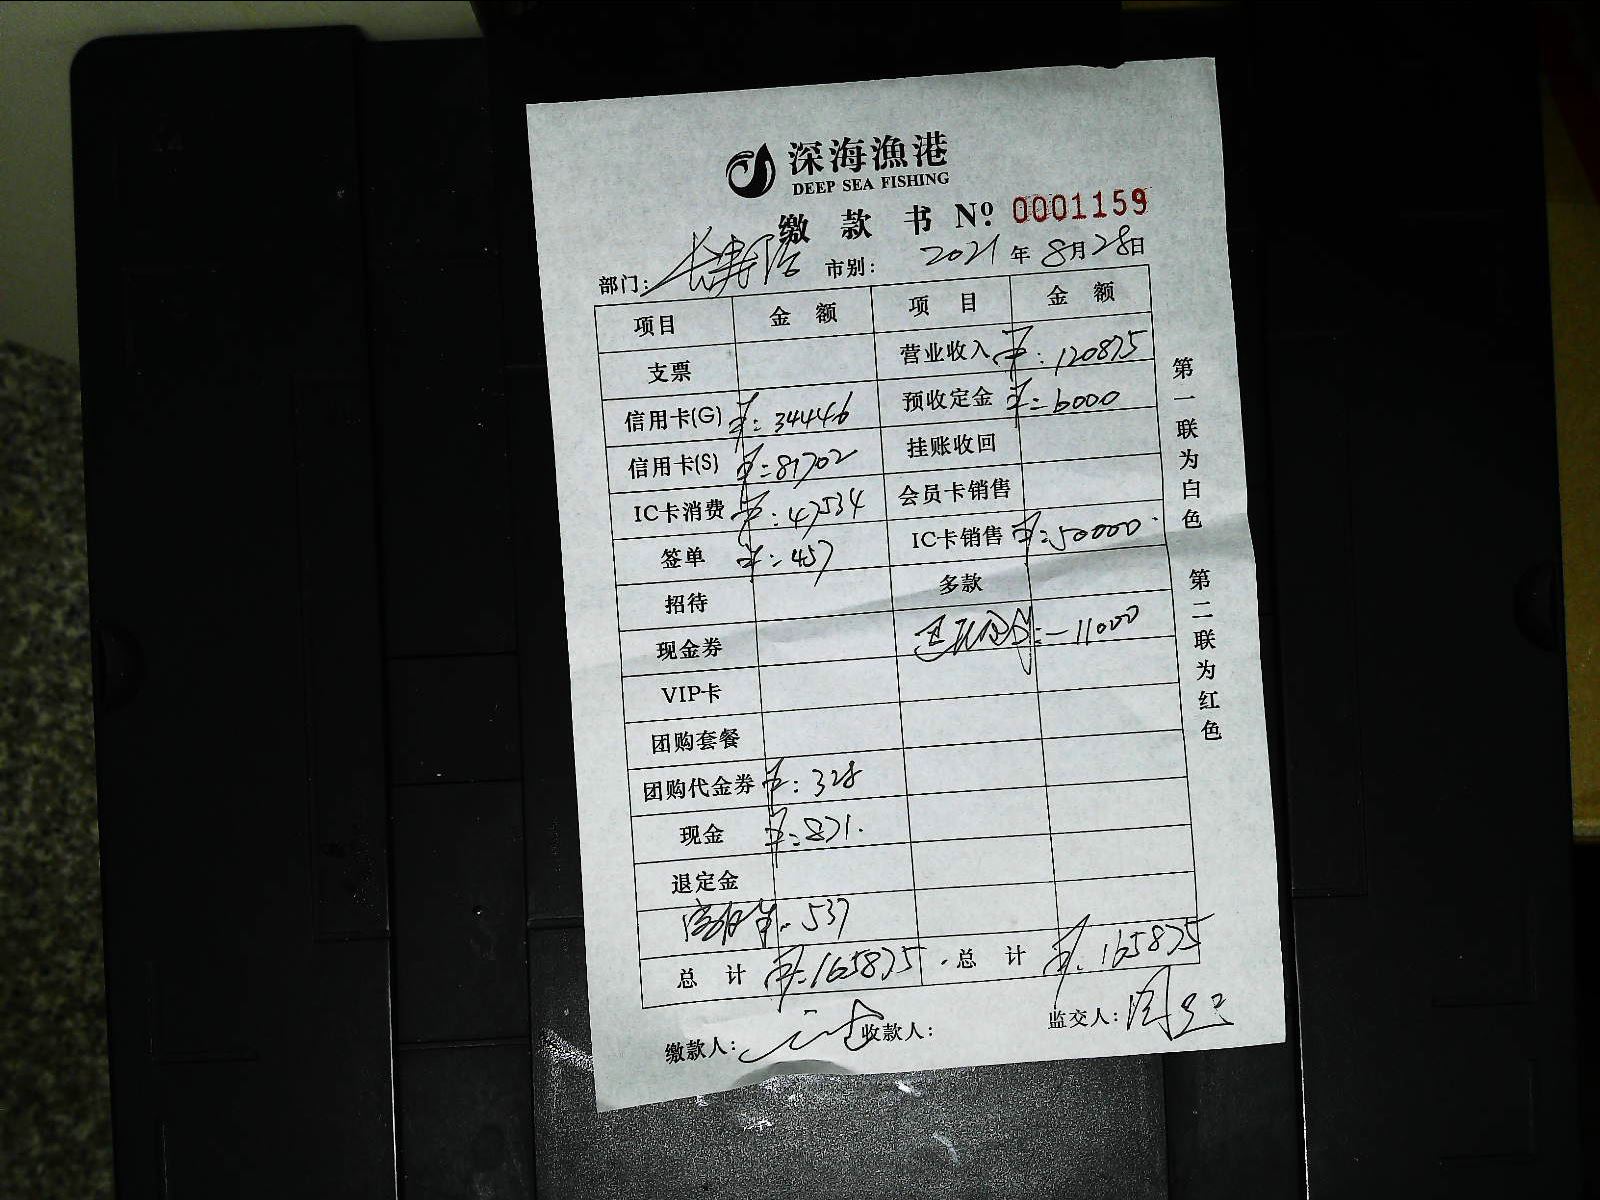 深海漁港
DEEP SEA FISHING
缴款书 Nº: 0001159
部门: 市别: 2021年8月28日
项目 金额 项目 金额
支票 营业收入 ¥:120875
信用卡(G) ¥:34446 预收定金 ¥:6000
信用卡(S) ¥:81702 挂账收回
IC卡消费 ¥:47534 会员卡销售
签单 ¥:457 IC卡销售 ¥:50000
招待 多款
现金券 ¥:-11000
VIP卡
团购套餐
团购代金券 ¥:328
现金 ¥:871.
退定金
537
总计 ¥:165875 总计 ¥:165875
缴款人: 收款人: 监交人:
第一联为白色 第二联为红色